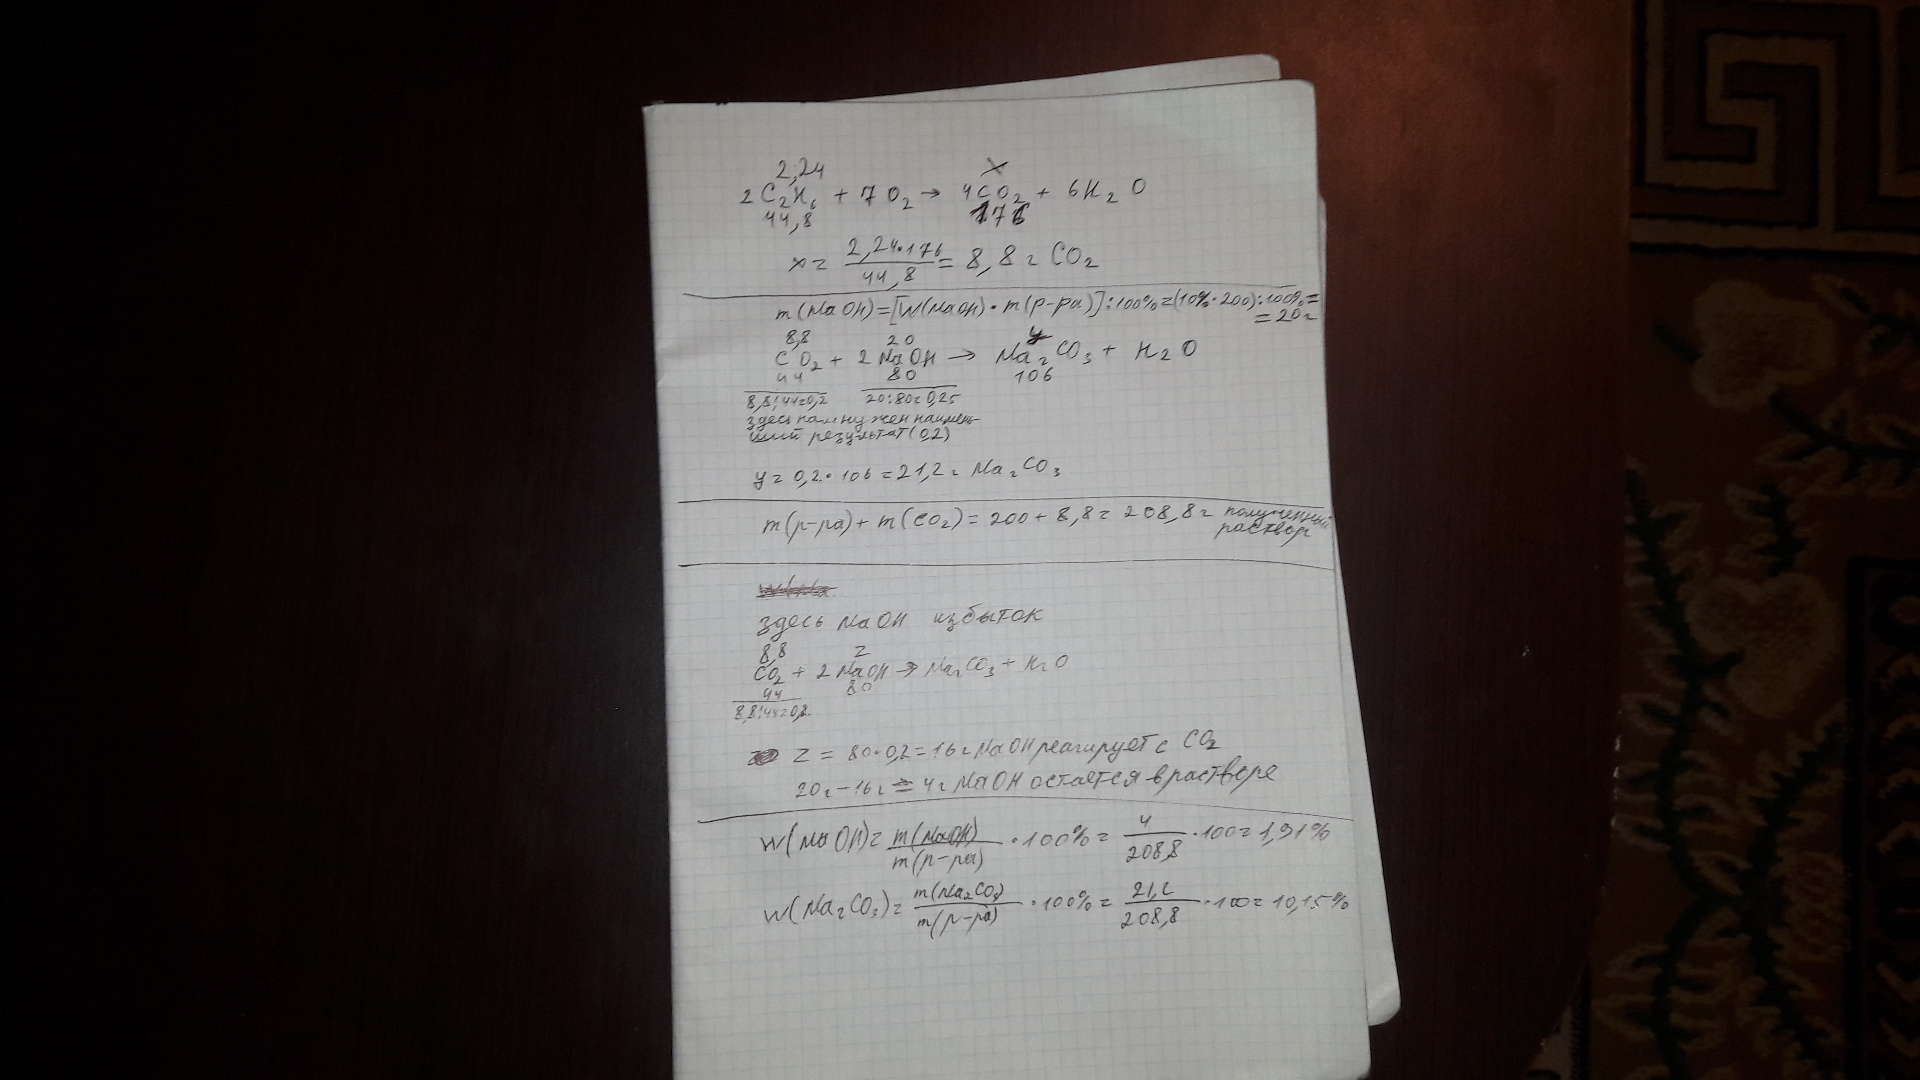 2,24 x
2C₂H₆ + 7O₂ → 4CO₂ + 6H₂O
44,8 176
x = 2,24·176 / 44,8 = 8,8г CO₂
m(NaOH)=[W(NaOH)·m(р-ра)]:100%=(10%·200):100%=
=20г
8,8 20 y
CO₂ + 2NaOH → Na₂CO₃ + H₂O
44 80 106
8,8:44=0,2 20:80=0,25
здесь нам нужен наимень-
ший результат(0,2)
y = 0,2·106=21,2г Na₂CO₃
m(р-ра)+m(CO₂)=200+8,8=208,8г полученный
раствор
здесь NaOH избыток
8,8 z
CO₂ + 2NaOH → Na₂CO₃ + H₂O
44 80
8,8:44=0,2
z = 80·0,2=16г NaOH реагирует с CO₂
20г-16г=4г NaOH остается в растворе
W(NaOH)= m(NaOH) / m(р-ра) ·100%= 4 / 208,8 ·100=1,91%
W(Na₂CO₃)= m(Na₂CO₃) / m(р-ра) ·100%= 21,2 / 208,8 ·100=10,15%